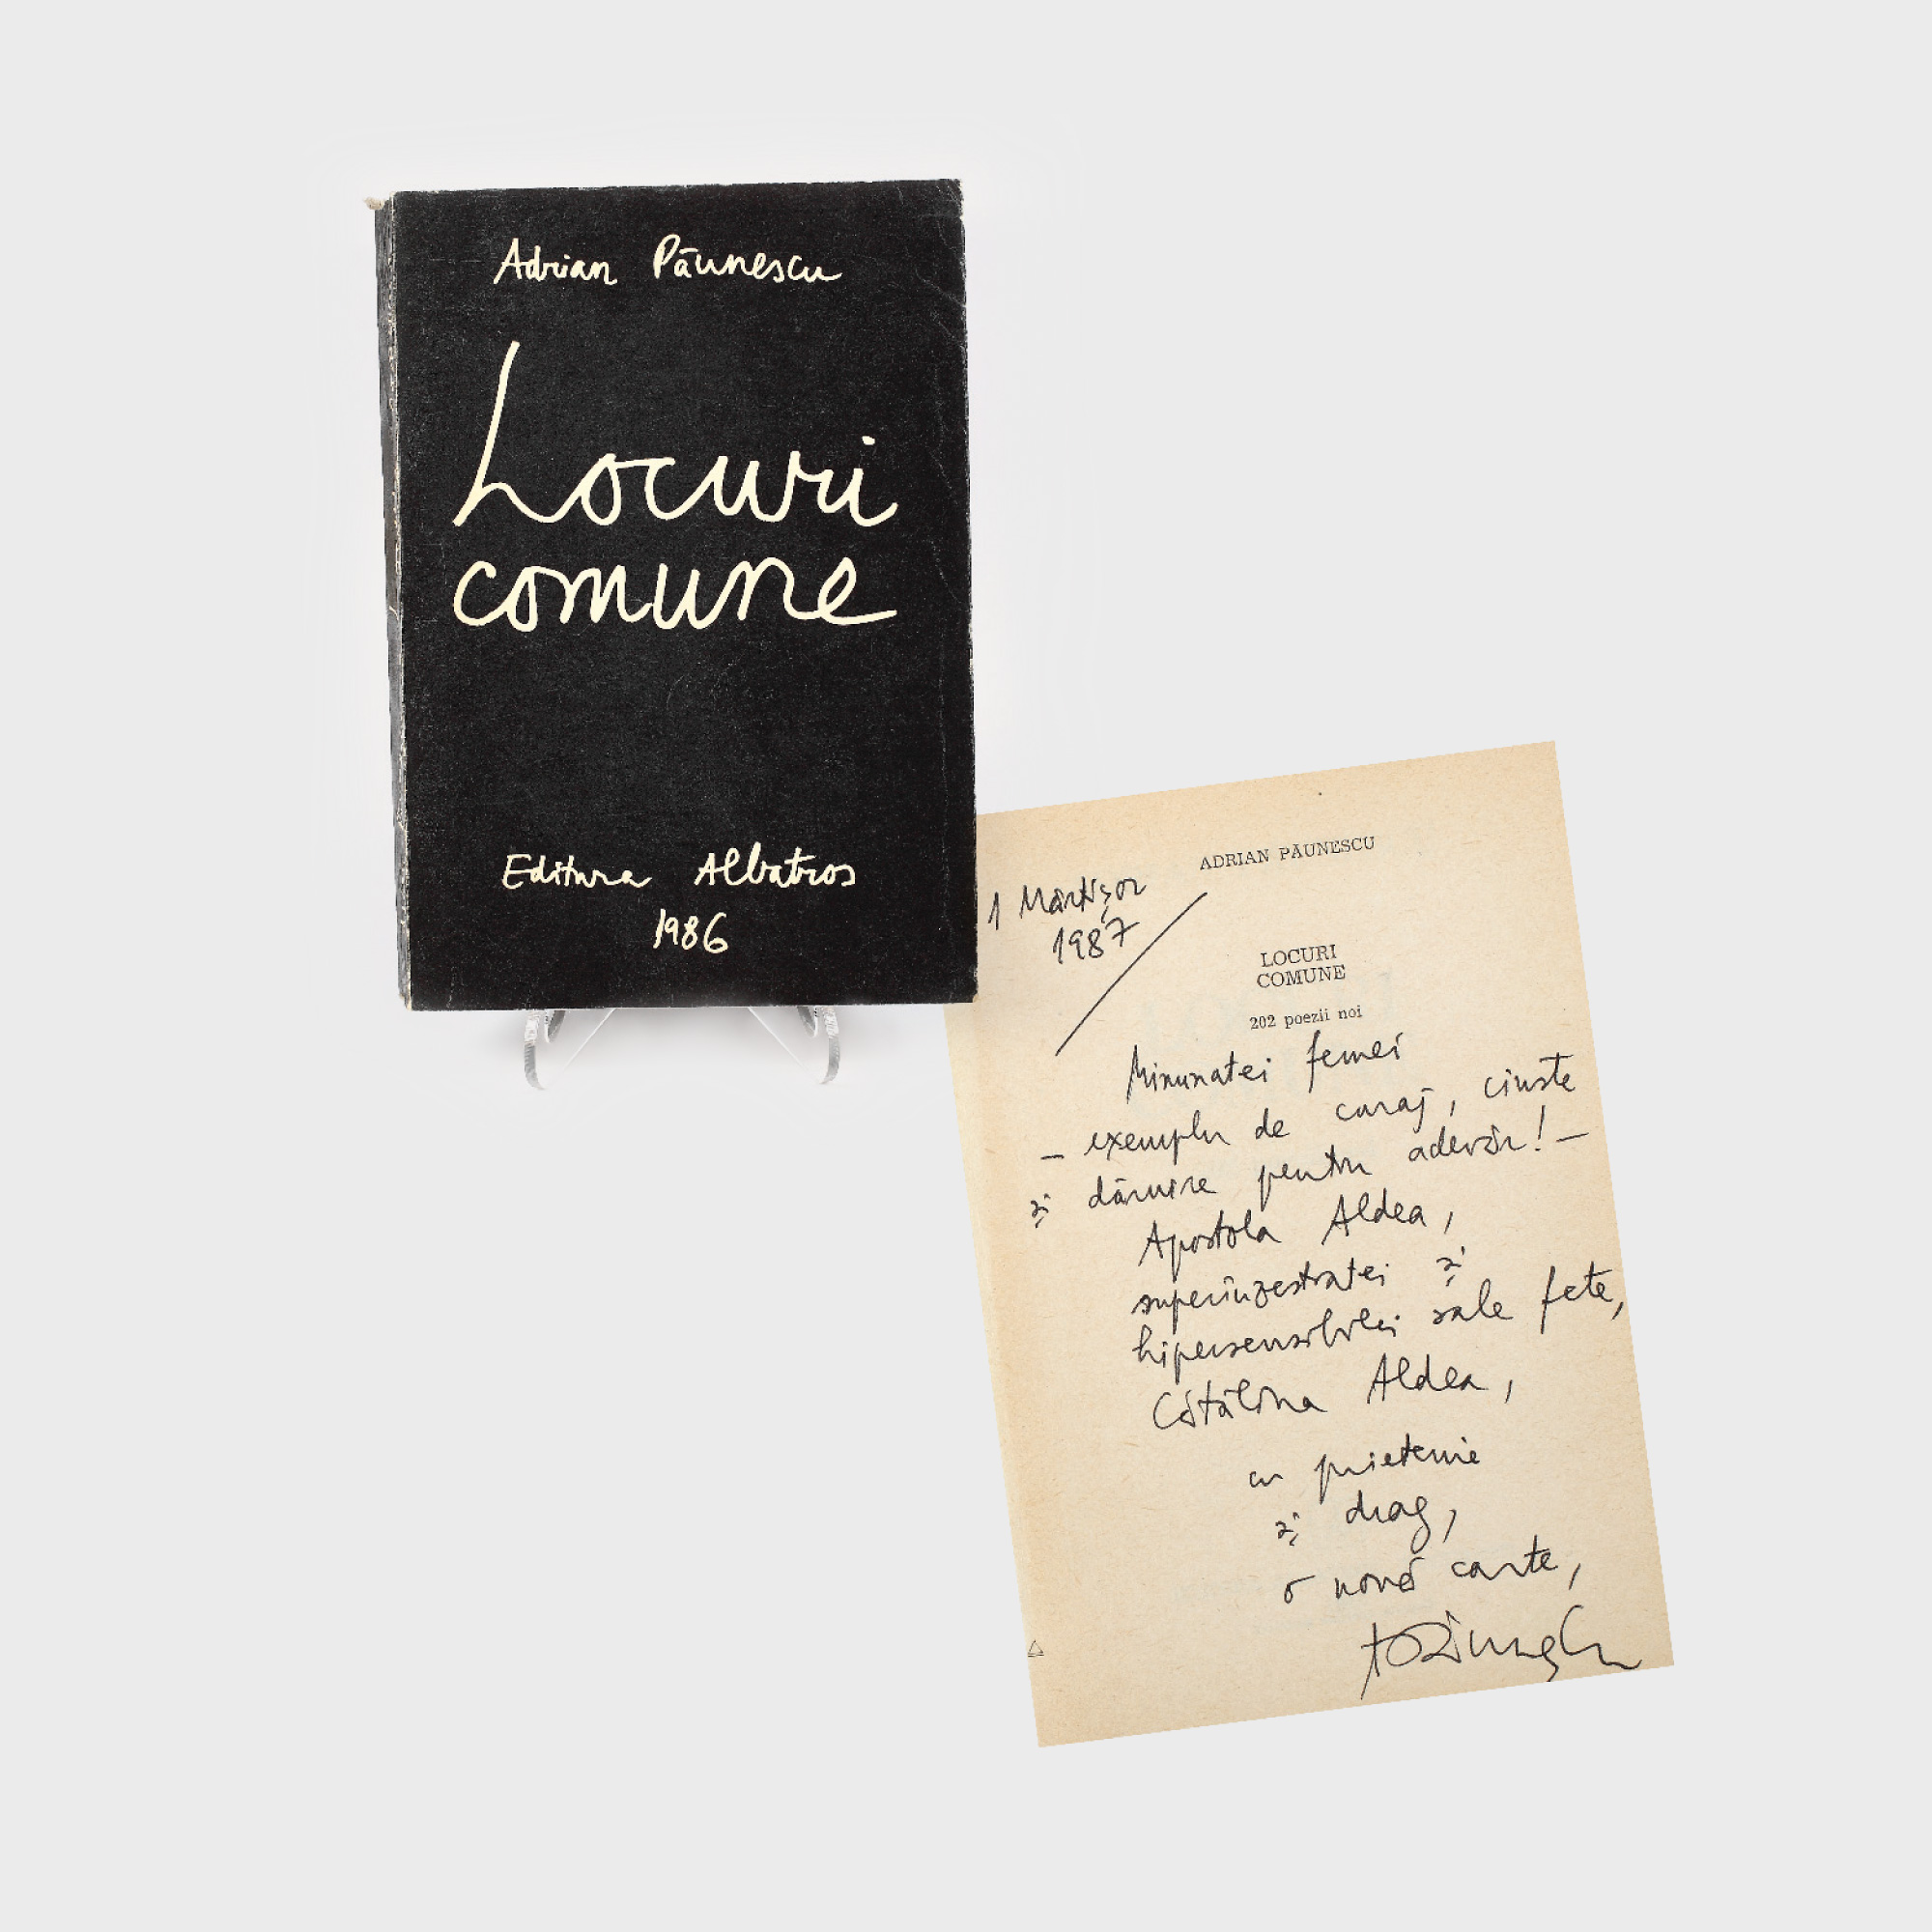 Adrian Păunescu
Locuri
comune
Editura Albatros
1986
ADRIAN PĂUNESCU
1 Mărțișor
1987
LOCURI
COMUNE
202 poezii noi
Minunatei femei
– exemplu de curaj, cinste
și dăruire pentru adevăr! –
Apostola Aldea,
superînzestratei și
hipersensibilei sale fete,
Cătălina Aldea,
cu prietenie
și drag,
o nouă carte,